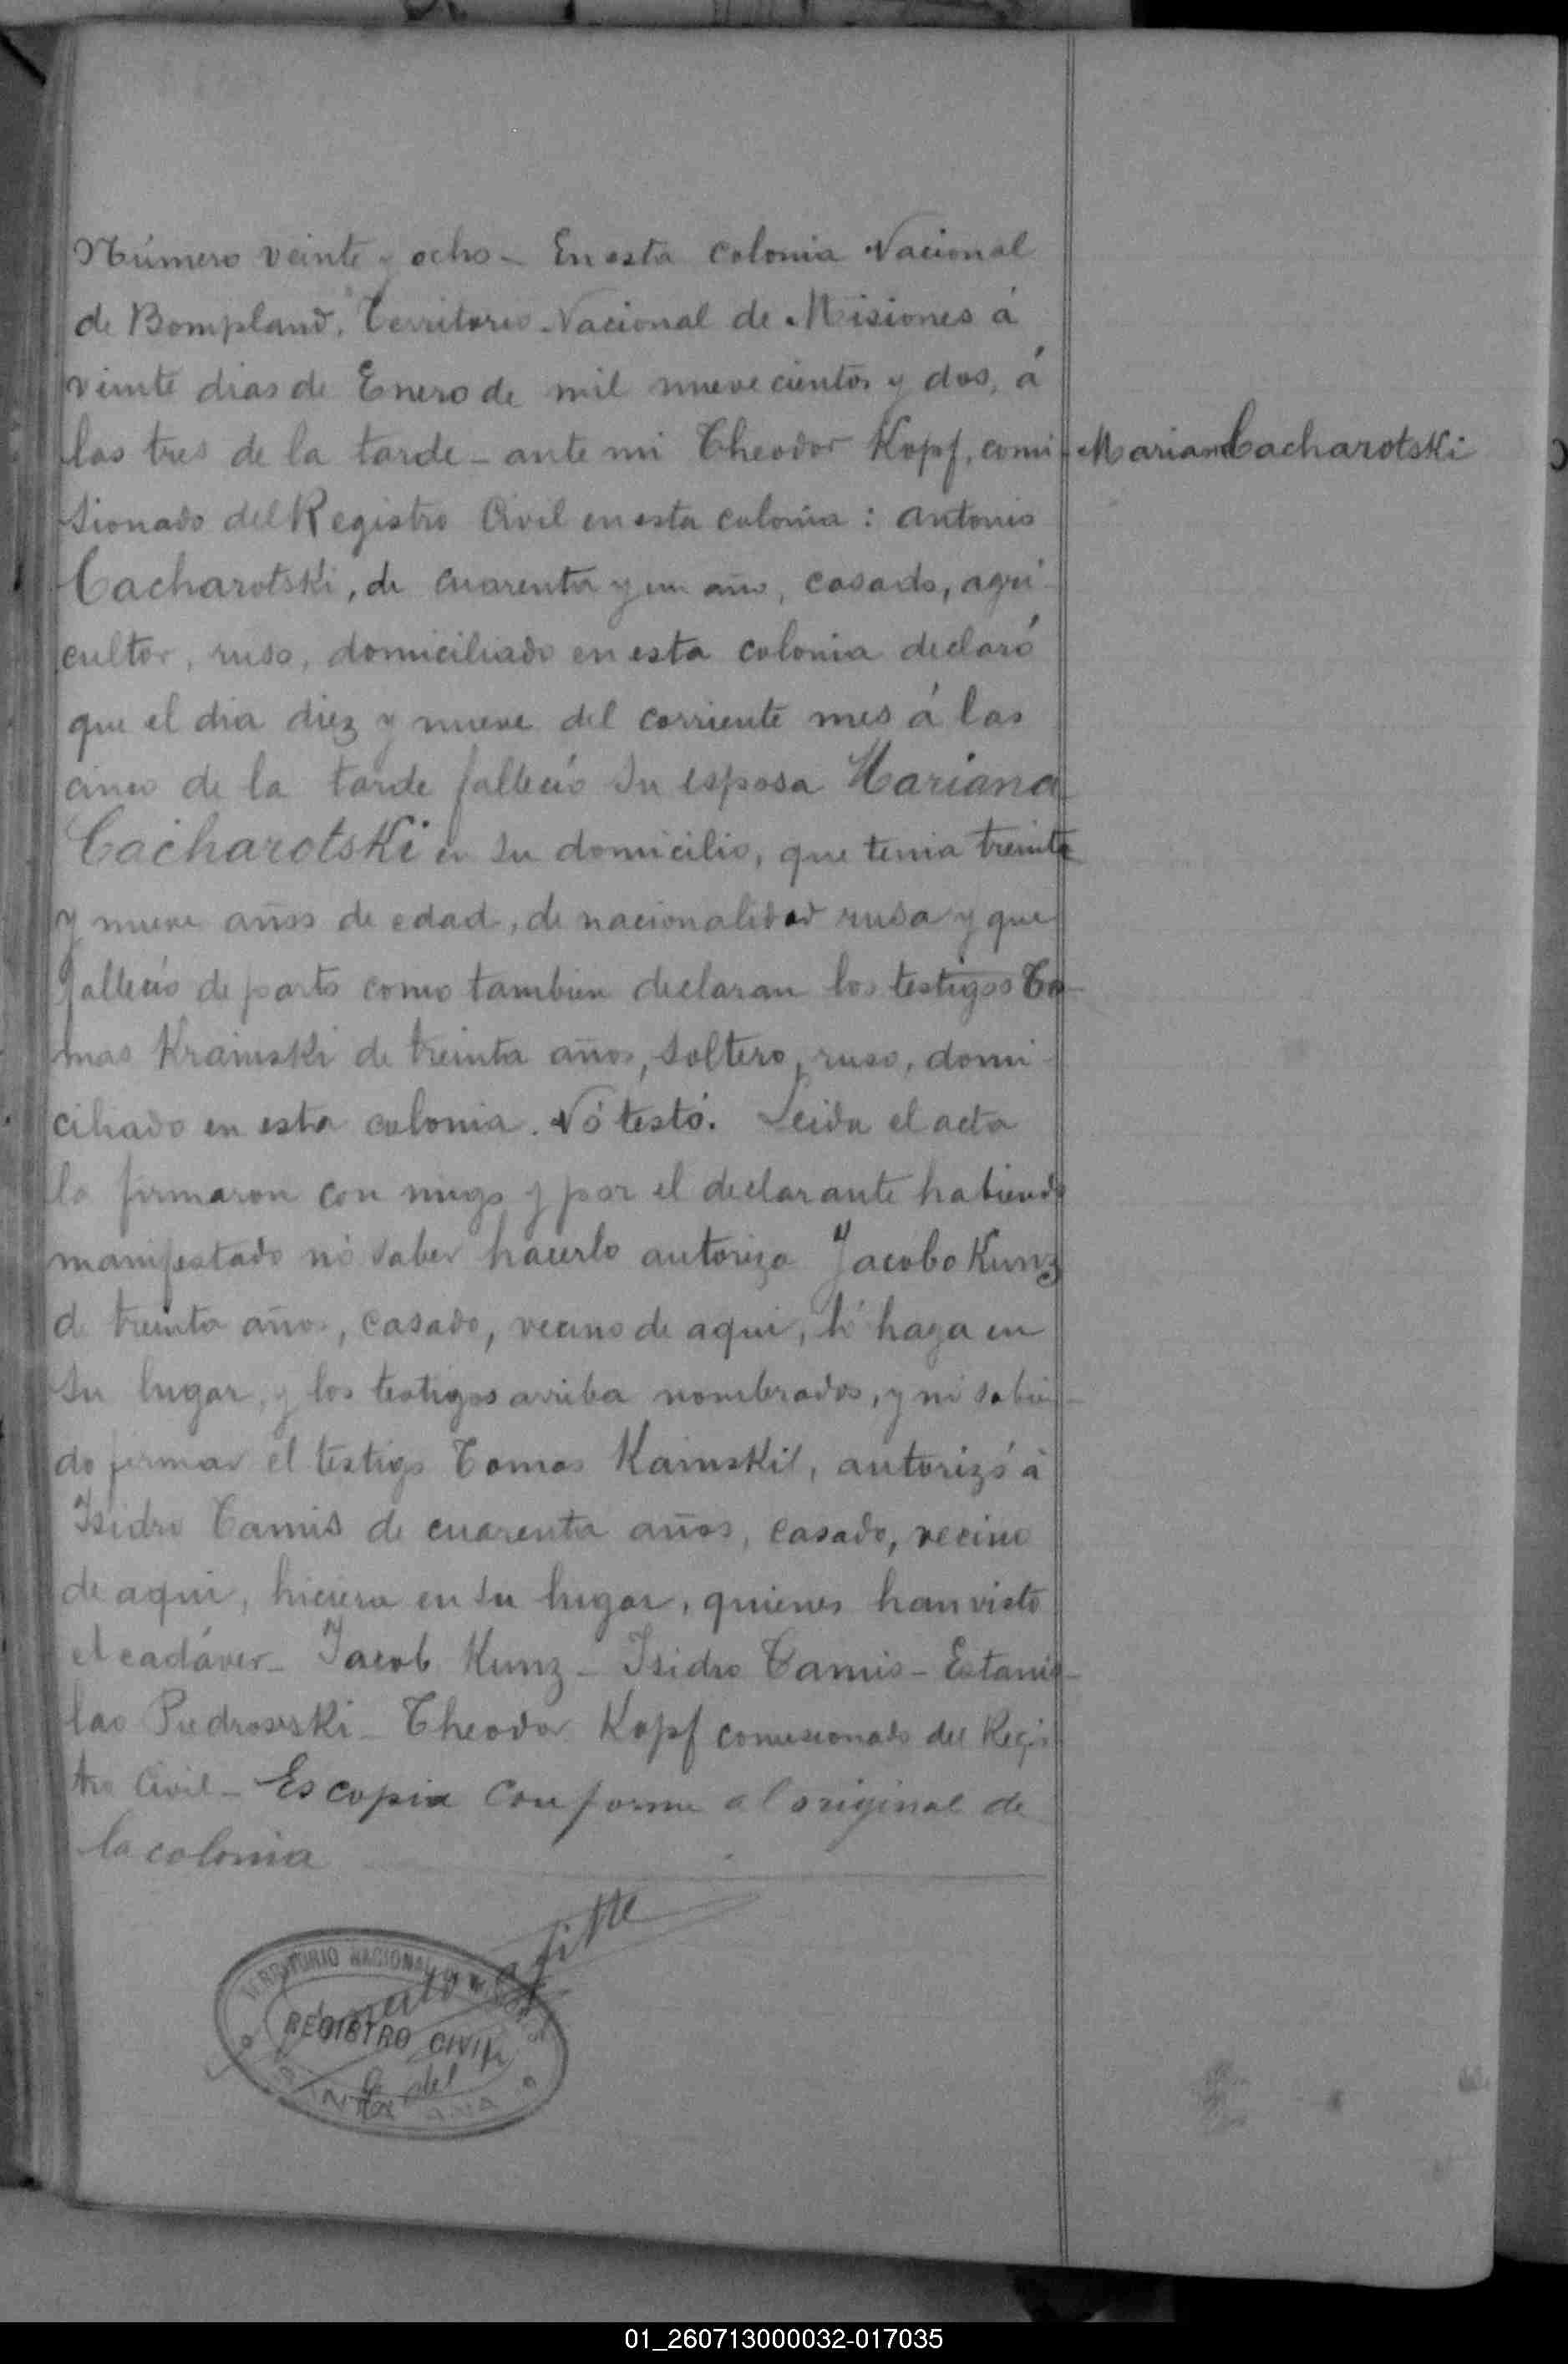 Número veinte y ocho - En esta colonia Nacional
de Bompland, Territorio Nacional de Misiones á
veinte dias de Enero de mil nuevecientos y dos, á
las tres de la tarde - ante mi Theodor Kopf, comi-
Mariana Cacharotski
sionado del Registro Civil en esta colonia: antonio
Cacharotski, de cuarenta y un año, casado, agri-
cultor, ruso, domiciliado en esta colonia declaró
que el dia diez y nueve del corriente mes á las
cinco de la tarde falleció su esposa Mariana
Cacharotski en su domicilio, que tenia treinta
y nueve años de edad, de nacionalidad rusa y que
falleció de parto como tambien declaran los testigos To-
mas Krainski de treinta años, soltero, ruso, domi-
ciliado en esta colonia. Nó testó. Leida el acta
la firmaron con migo y por el declarante habiendo
manifestado nó saber hacerlo autoriza Jacobo Kunz
de treinta años, casado, vecino de aqui, ló haga en
su lugar, y los testigos arriba nombrados, y nó sabien-
do firmar el testigo Tomas Kainski, autorizó á
Isidro Tamis de cuarenta años, casado, vecino
de aqui, hiciera en su lugar, quienes han visto
el cadáver - Jacob Kunz - Isidro Tamis - Estanis-
lao Piedrowski - Theodor Kopf comisionado del Regis-
tro Civil - Es copia conforme al original de
la colonia
TERRITORIO NACIONAL
REGISTRO CIVIL
SANTA ANA